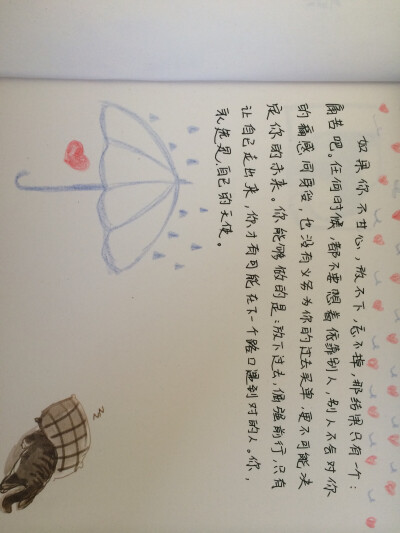 如果你不甘心,放不下,忘不掉,那结果只有一个:
痛苦吧。任何时候,都不要想着依靠别人,别人不会对你
的痛感同身受,也没有义务为你的过去买单,更不可能决
定你的未来。你能够做的是:放下过去,倔强前行,只有
让自己走出来,你才有可能在下一个路口遇到对的人。你,
永远是自己的天使。